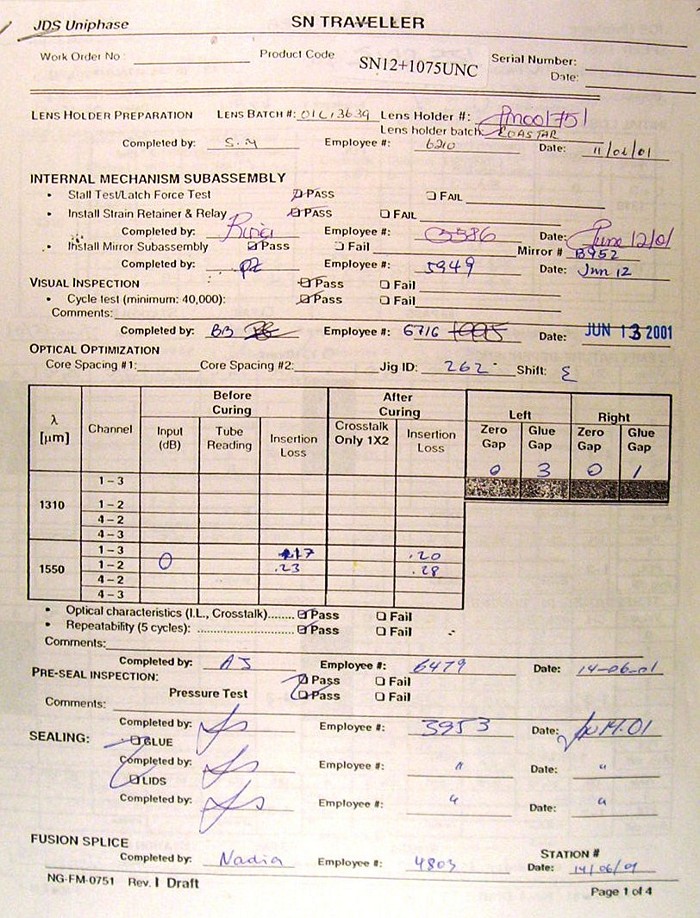 JDS Uniphase SN TRAVELLER
Work Order No: Product Code SN12+1075UNC Serial Number:
Date:
LENS HOLDER PREPARATION LENS BATCH #: Lens Holder #:
Lens holder batch
Completed by: S.M Employee #: 6210 Date: 11/06/01
INTERNAL MECHANISM SUBASSEMBLY
• Stall Test/Latch Force Test Pass FAIL
• Install Strain Retainer & Relay Pass FAIL
Completed by: Employee #: Date: June 12/01
• Install Mirror Subassembly Pass Fail Mirror # B952
Completed by: PZ Employee #: 5949 Date: Jun 12
VISUAL INSPECTION Pass Fail
• Cycle test (minimum: 40,000): Pass Fail
Comments:
Completed by: BB Employee #: 6716 Date: JUN 13 2001
OPTICAL OPTIMIZATION
Core Spacing #1: Core Spacing #2: Jig ID: 262 Shift:
Before Curing After Curing Left Right
λ [µm] Channel Input (dB) Tube Reading Insertion Loss Crosstalk Only 1X2 Insertion Loss Zero Gap Glue Gap Zero Gap Glue Gap
0 3 0 1
1310 1 – 3
1 – 2
4 – 2
4 – 3
1550 1 – 3 0 .17 .20
1 – 2 .23 .28
4 – 2
4 – 3
• Optical characteristics (I.L., Crosstalk)....... Pass Fail
• Repeatability (5 cycles): Pass Fail
Comments:
Completed by: AJ Employee #: 6479 Date: 14-06-01
PRE-SEAL INSPECTION: Pass Fail
Pressure Test Pass Fail
Comments:
Completed by: Employee #: 3953 Date:
SEALING: GLUE
Completed by: Employee #: " Date: "
LIDS
Completed by: Employee #: " Date: "
FUSION SPLICE STATION #
Completed by: Nadia Employee #: 4803 Date: 14/06/01
NG-FM-0751 Rev. 1 Draft Page 1 of 4